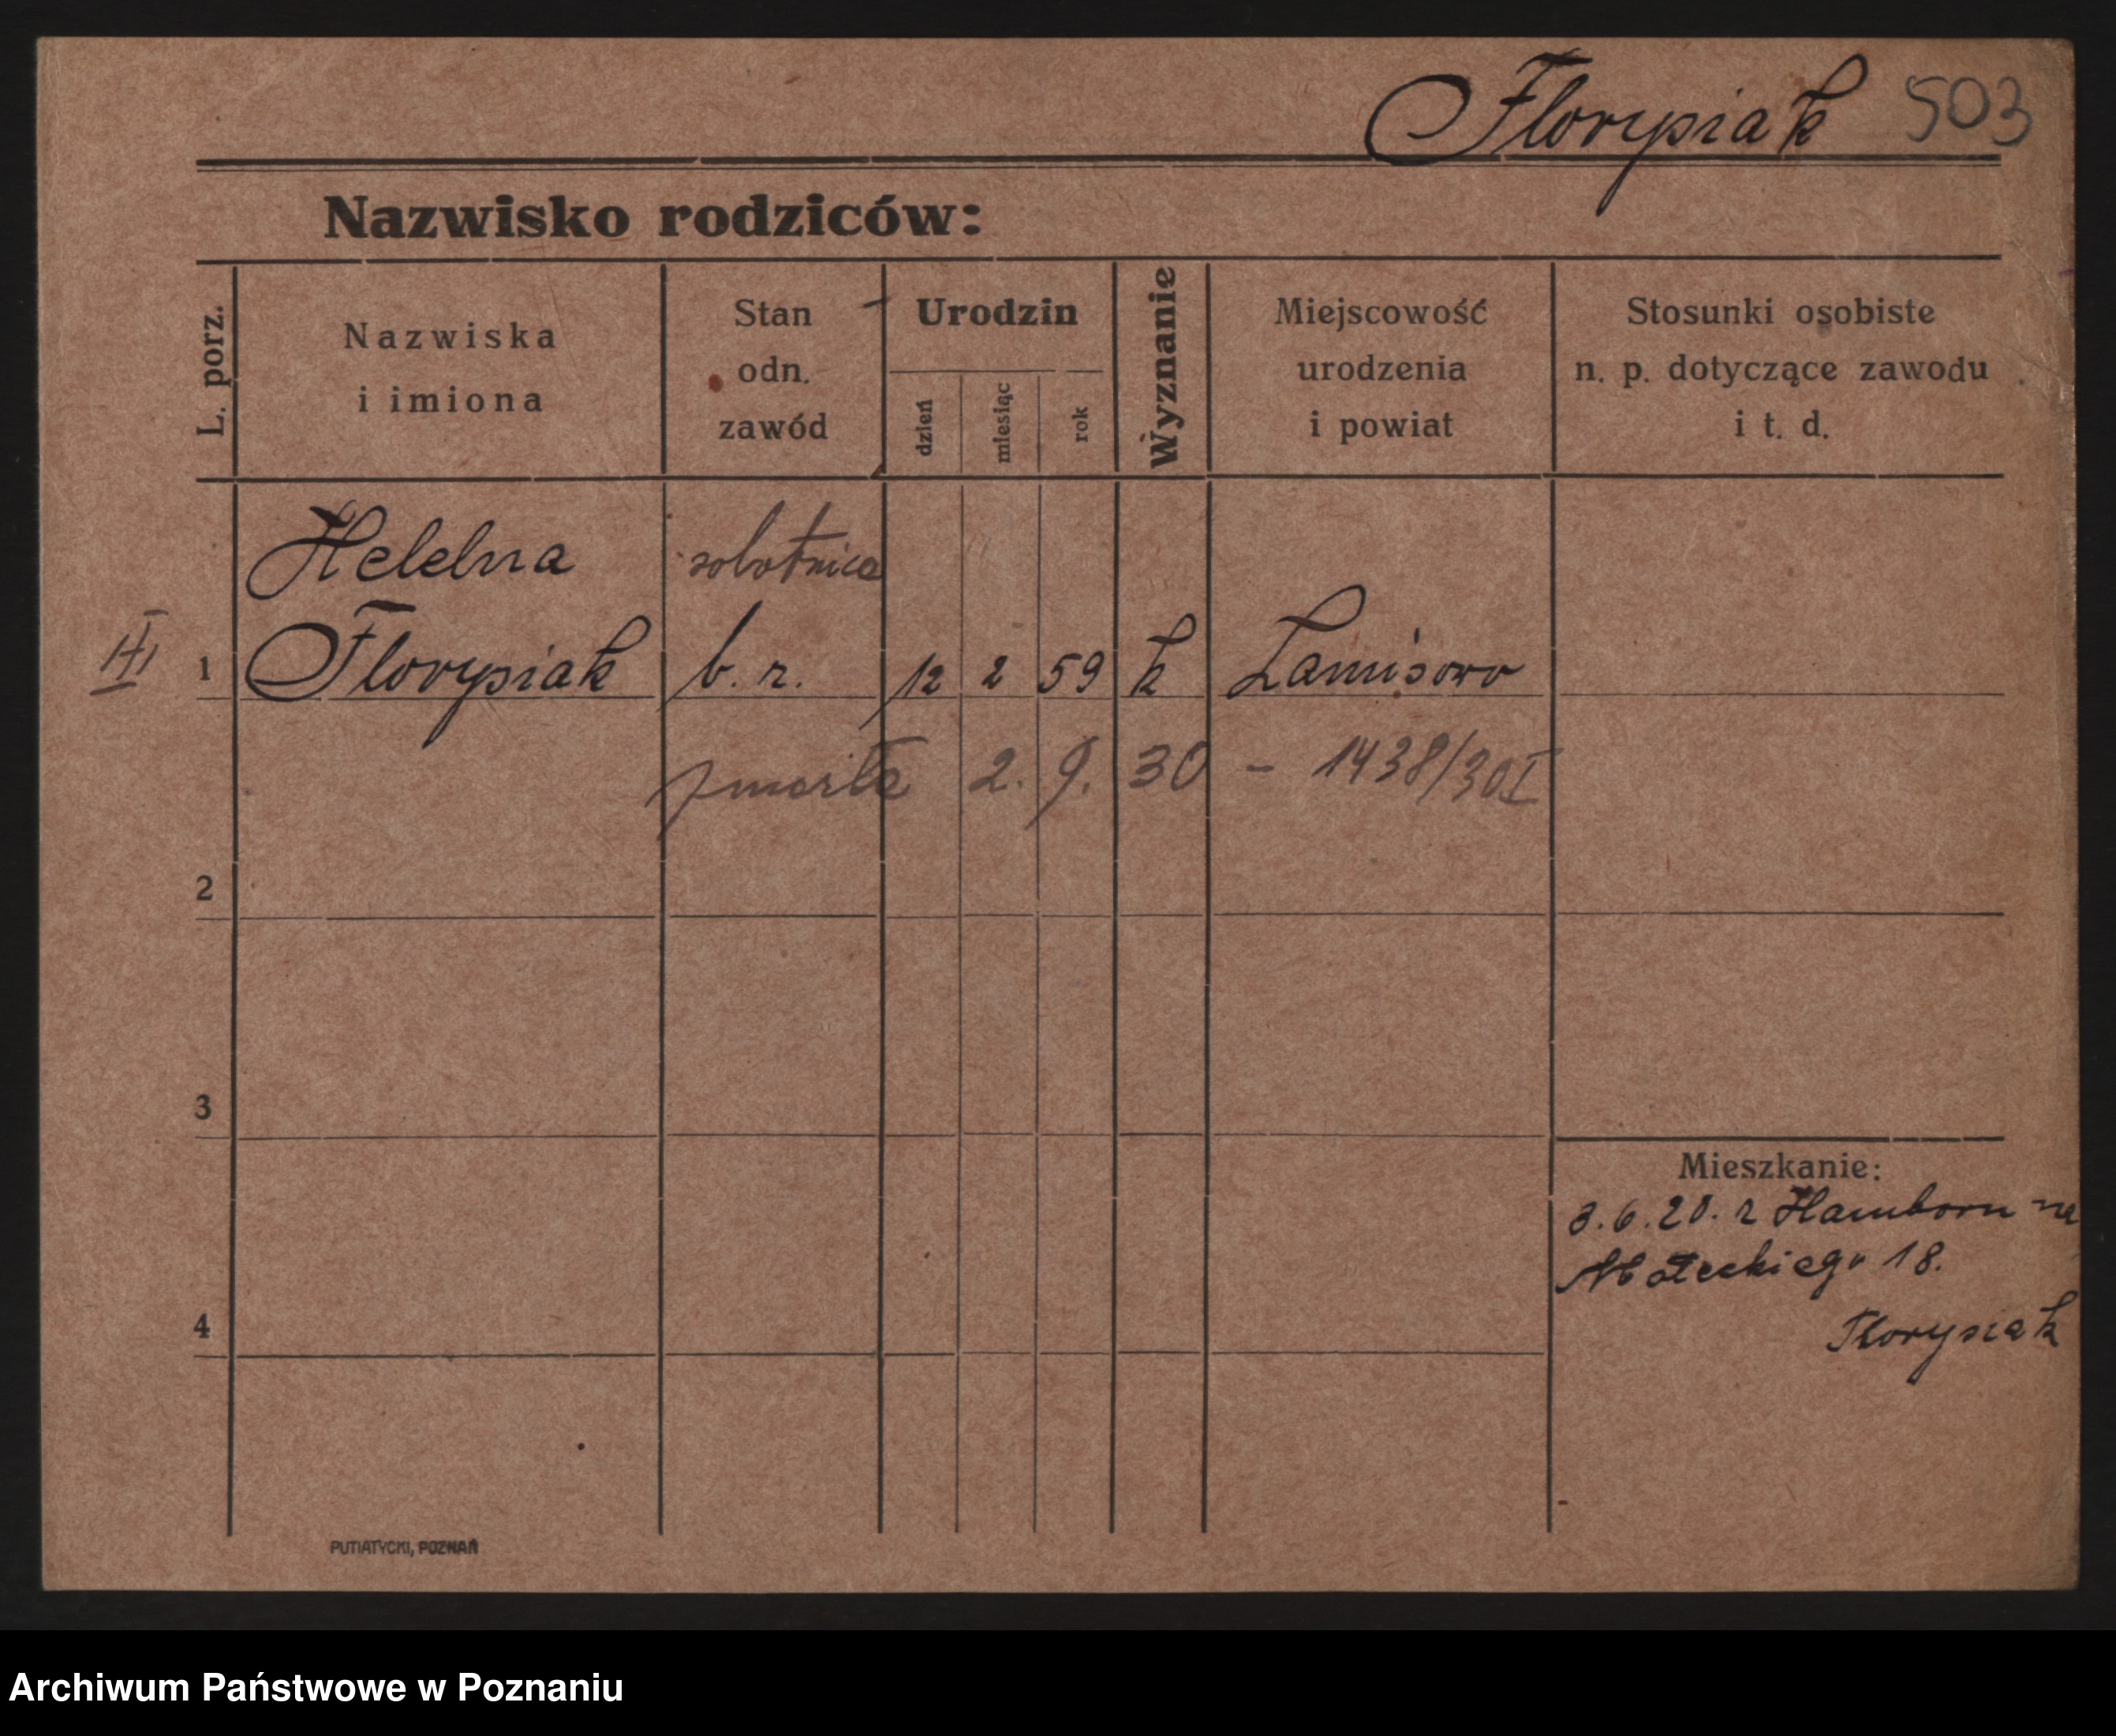 Florysiak 503
Nazwisko rodziców:
L. porz.
Nazwiska
i imiona
Stan
odn.
zawód
Urodzin
dzień
miesiąc
rok
Wyznanie
Miejscowość
urodzenia
i powiat
Stosunki osobiste
n. p. dotyczące zawodu
i t. d.
Helelna robotnica
1 Florysiak b. r. 12 2 59 k
zmarła 2. 9. 30 - 1438/30 I
2
3
4
Mieszkanie:
3.6.20. z Hamborn na
Małeckiego 18.
Florysiak
PUTIATYCKI, POZNAŃ
Archiwum Państwowe w Poznaniu